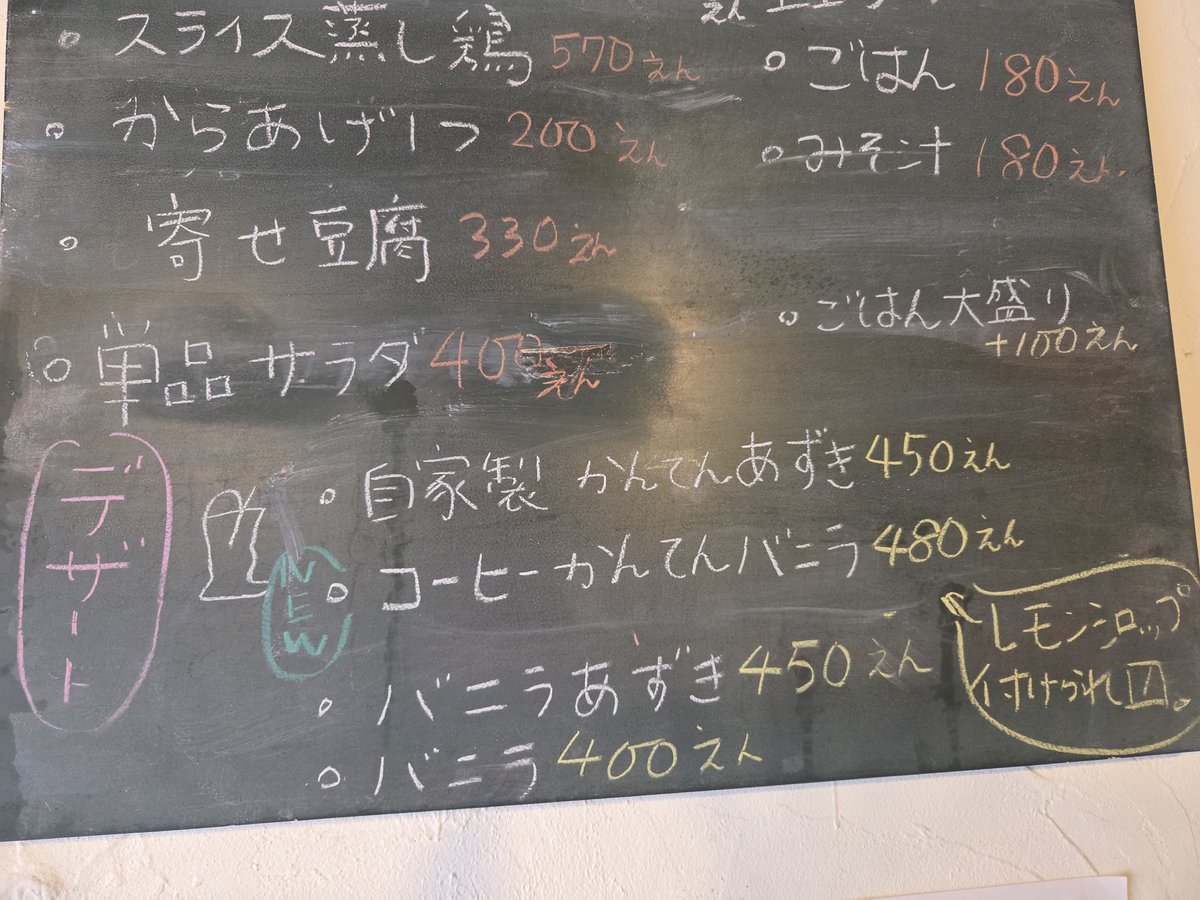 スライス蒸し鶏 570えん
からあげ1つ 200えん
寄せ豆腐 330えん
単品サラダ 400えん
えん
ごはん 180えん
みそ汁 180えん
ごはん大盛り
+100えん
デザート
自家製 かんてんあずき 450えん
NEW
コーヒーかんてんバニラ 480えん
バニラあずき 450えん
バニラ 400えん
レモンシロップ
付けられ〼。